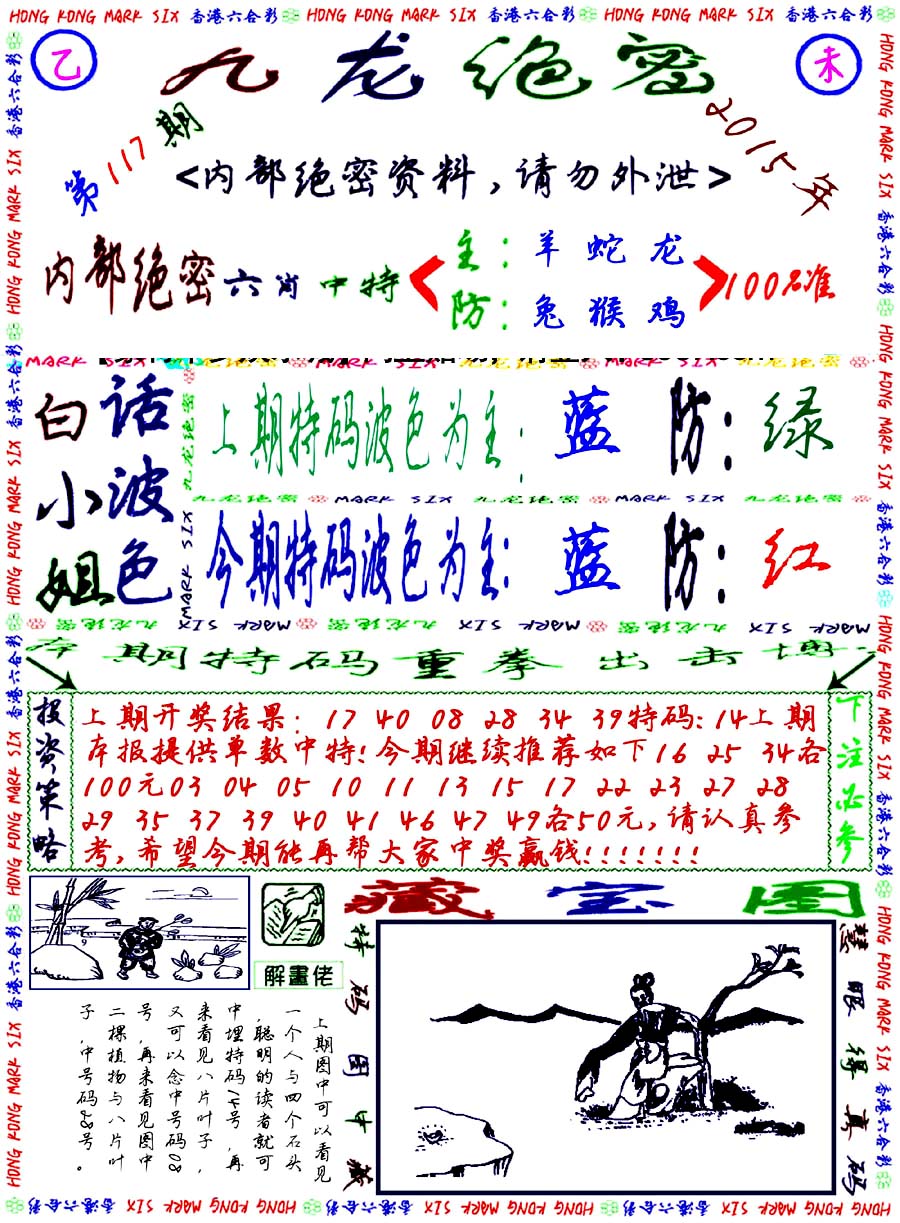 HONG KONG MARK SIX 香港六合彩 HONG KONG MARK SIX 香港六合彩 HONG KONG MARK SIX 香港六合彩
乙
九龙绝密
未
第117期
2015年
<内部绝密资料,请勿外泄>
内部绝密六肖中特
主:羊 蛇 龙
防:兔 猴 鸡
100%准
白话小波姐色
上期特码波色为主: 蓝 防: 绿
九龙绝密 MARK SIX 九龙绝密 MARK SIX 九龙绝密
今期特码波色为主: 蓝 防: 红
MARK SIX 九龙绝密 MARK SIX 九龙绝密 MARK SIX 九龙绝密
本期特码重拳出击博
投资策略
上期开奖结果: 17 40 08 28 34 39特码:14上期
本报提供单数中特!今期继续推荐如下16 25 34各
100元03 04 05 10 11 13 15 17 22 23 27 28
29 35 37 39 40 41 46 47 49各50元,请认真参
考,希望今期能再帮大家中奖赢钱!!!!!!!
下注必参
藏宝图
解畫佬
特码图中藏
慧眼得真码
上期图中可以看见
一个人与四个石头
,聪明的读者就可
中埋特码14号,再
来看见八片叶子,
又可以念中号码08
号,再来看见图中
二棵植物与八片叶
子,中号码28号。
HONG KONG MARK SIX 香港六合彩 HONG KONG MARK SIX 香港六合彩 HONG KONG MARK SIX 香港六合彩